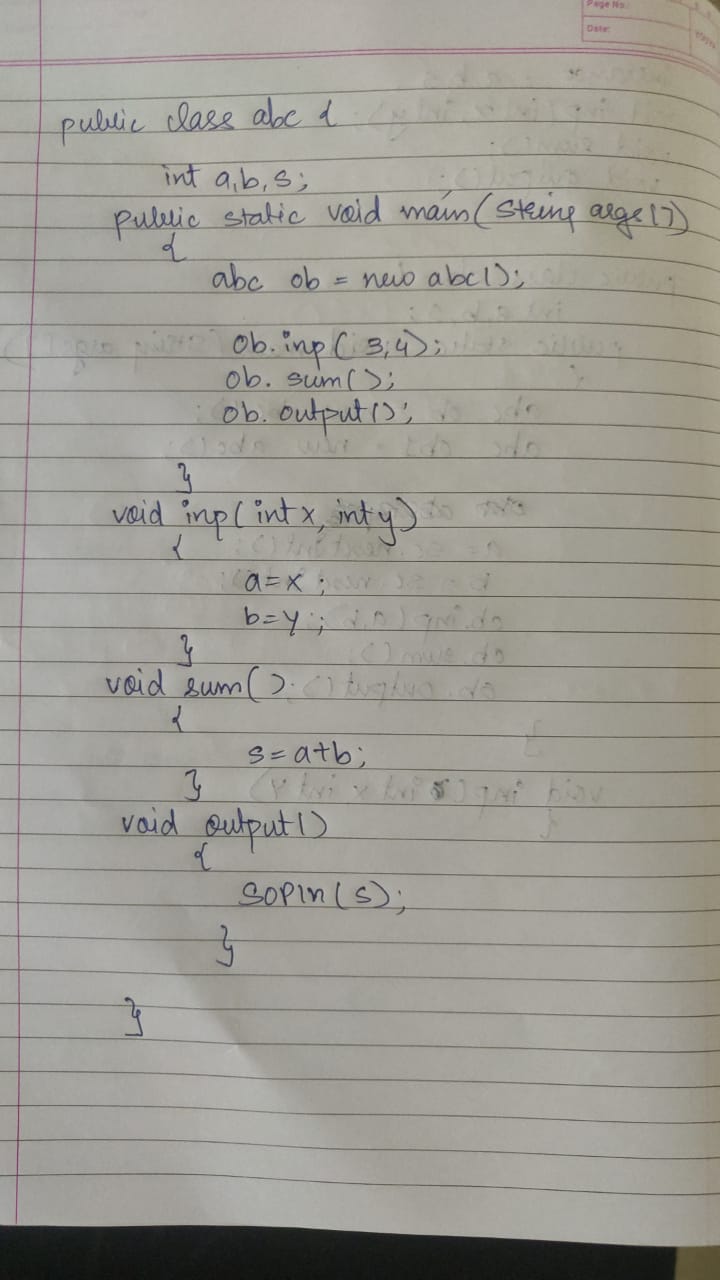 Page No.:
Date:
public class abc {
int a,b,s;
public static void main(String args[])
{
abc ob = new abc();
ob.inp(3,4);
ob. sum();
ob. output();
}
void inp(int x, int y)
{
a=x;
b=y;
}
void sum()
{
s=a+b;
}
void output()
{
SOPln(s);
}
}